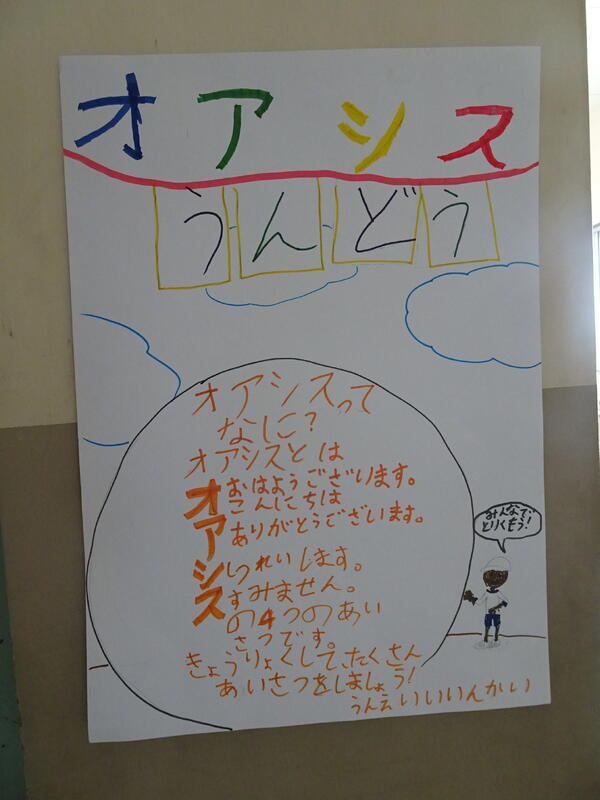 オアシス
うんどう
オアシスって
なに?
オアシスとは
オアシス
おはようございます。
こんにちは
ありがとうございます。
しつれいします。
すみません。
の4つのあい
さつです。
きょうりょくしてたくさん
あいさつをしましょう!
うんえいいいんかい
みんなで
とりくもう!